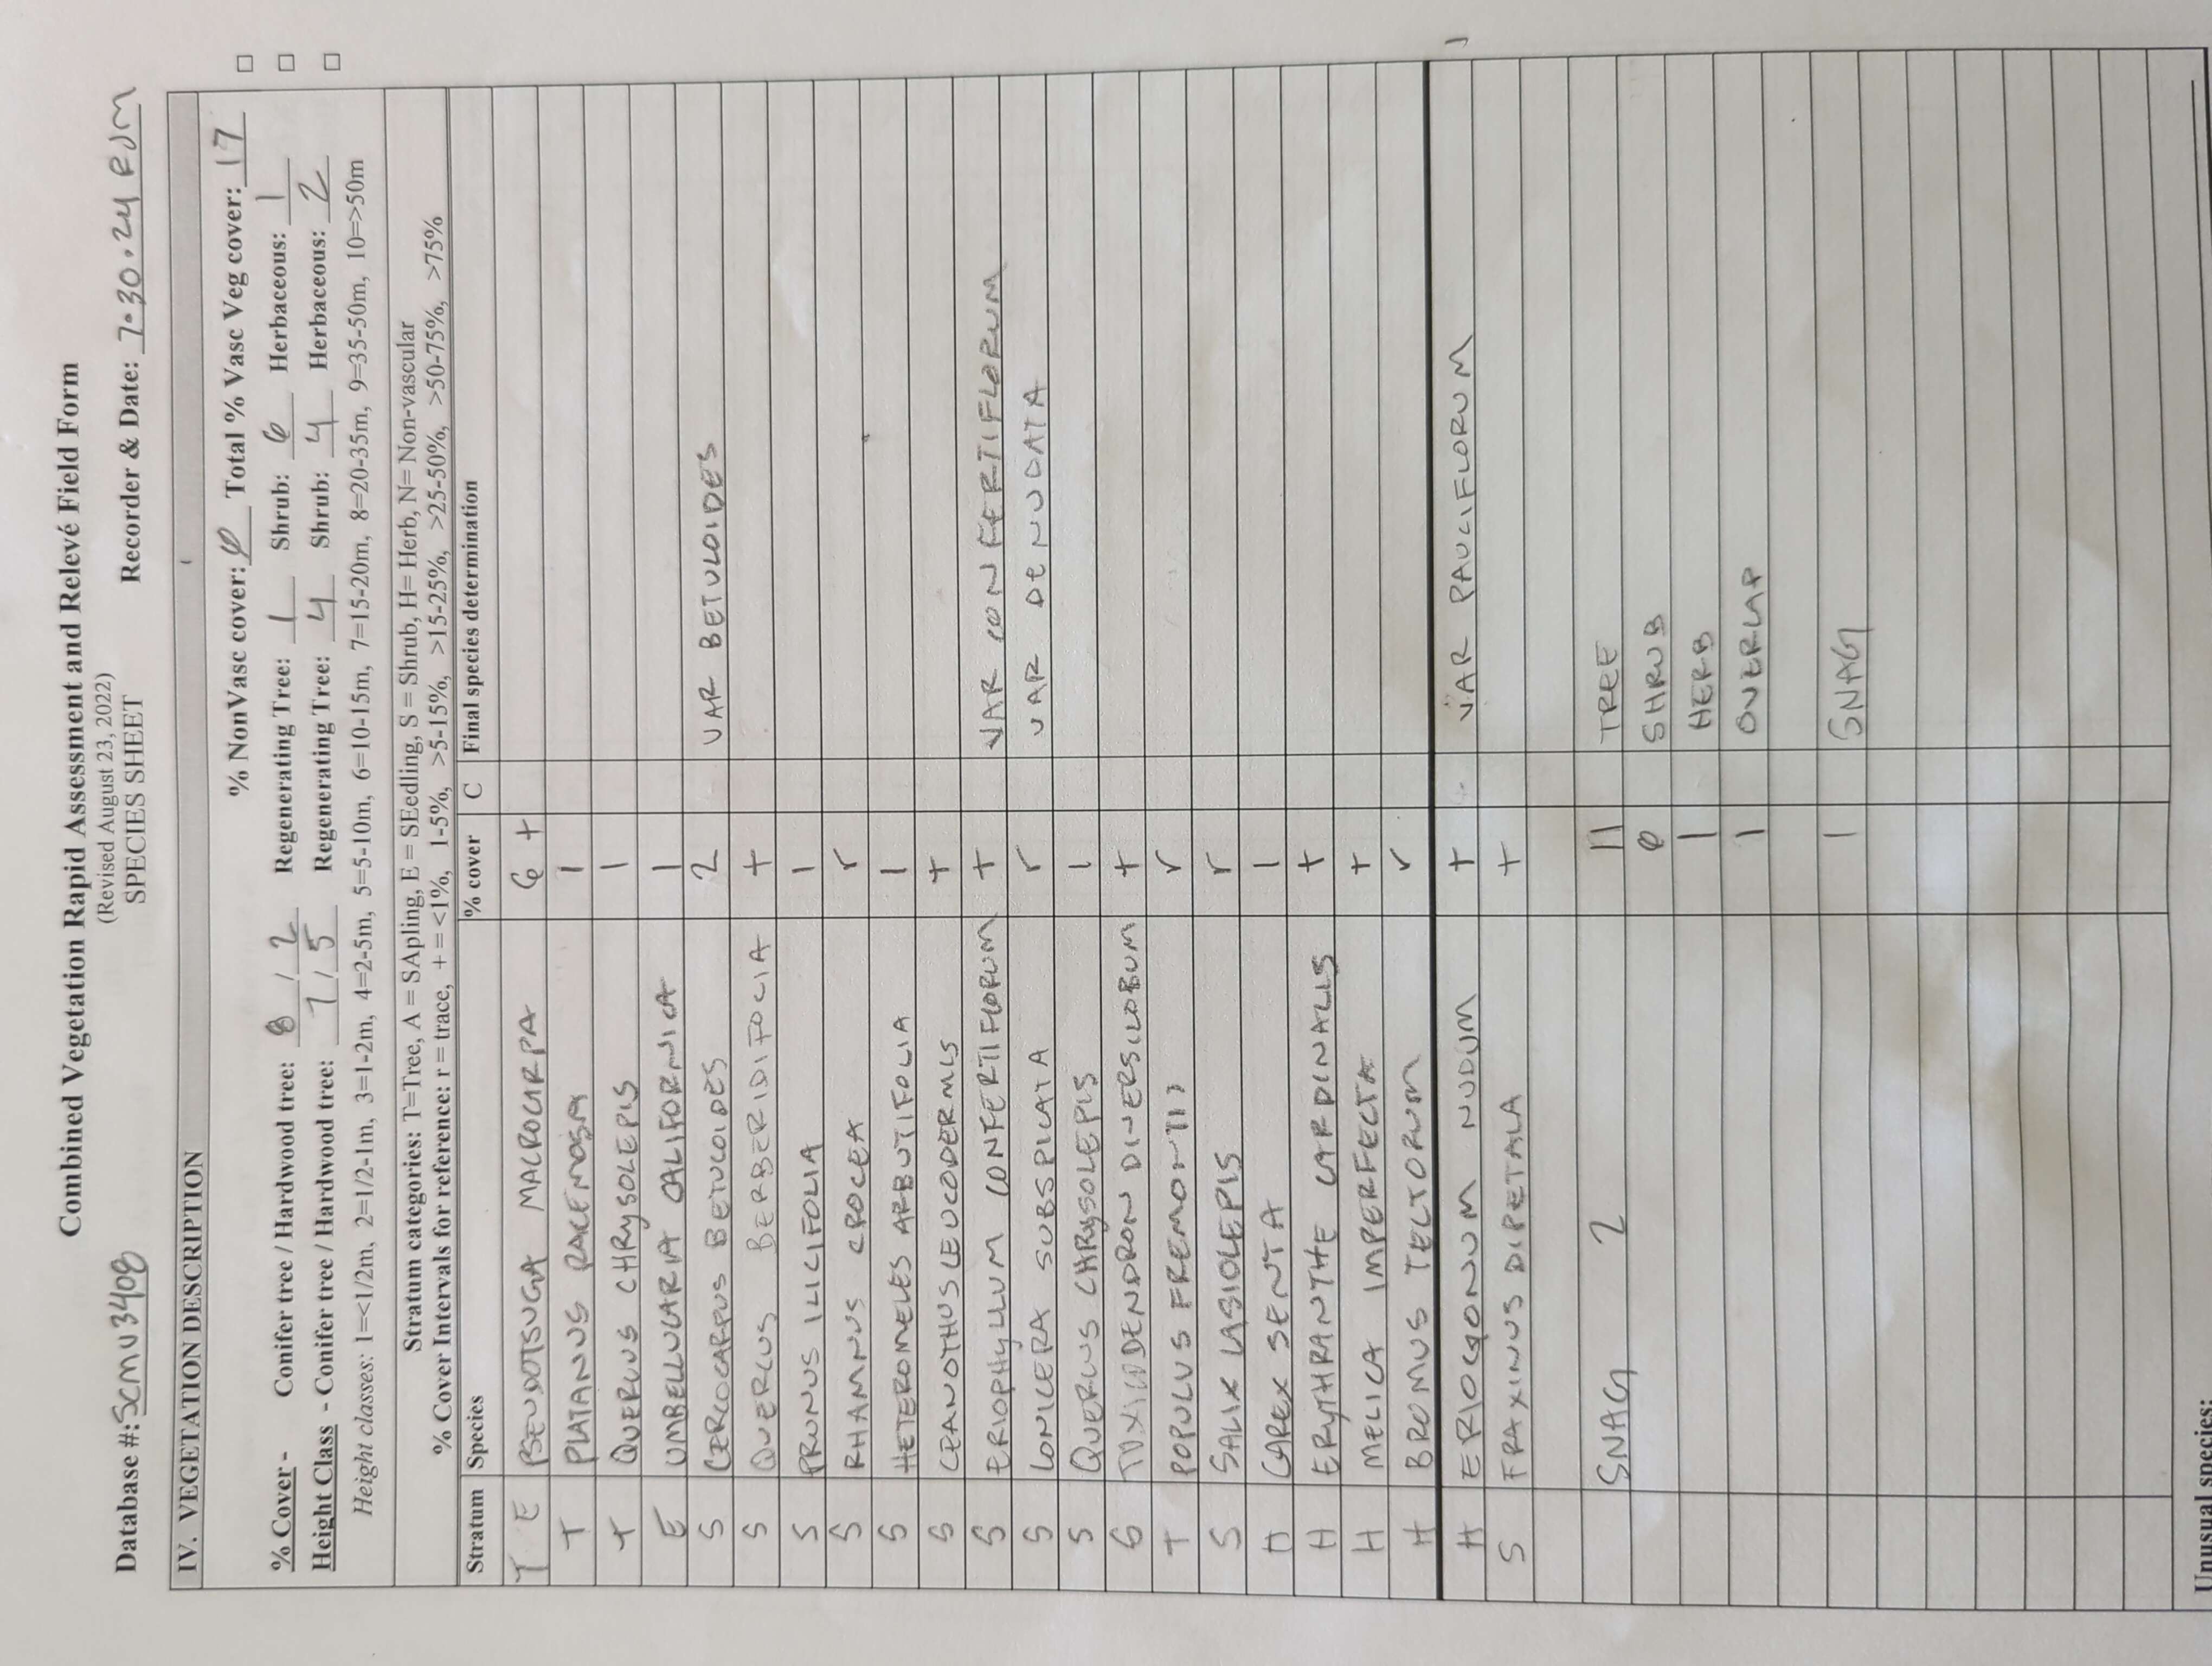 Combined Vegetation Rapid Assessment and Relevé Field Form
(Revised August 23, 2022)
SPECIES SHEET
Database #: SCMU3408 Recorder & Date: 7·30·24 RJM
IV. VEGETATION DESCRIPTION
% NonVasc cover: Ø Total % Vasc Veg cover: 17 □
% Cover - Conifer tree / Hardwood tree: 8 / 2 Regenerating Tree: 1 Shrub: 6 Herbaceous: 1 □
Height Class - Conifer tree / Hardwood tree: 7 / 5 Regenerating Tree: 4 Shrub: 4 Herbaceous: 2 □
Height classes: 1=<1/2m, 2=1/2-1m, 3=1-2m, 4=2-5m, 5=5-10m, 6=10-15m, 7=15-20m, 8=20-35m, 9=35-50m, 10=>50m
Stratum categories: T=Tree, A = SApling, E = SEedling, S = Shrub, H= Herb, N= Non-vascular
% Cover Intervals for reference: r = trace, + = <1%, 1-5%, >5-15%, >15-25%, >25-50%, >50-75%, >75%
Stratum Species % cover C Final species determination
T E PSEUDOTSUGA MACROCARPA 6 +
T PLATANUS RACEMOSA 1
T QUERCUS CHRYSOLEPIS 1
E UMBELLULARIA CALIFORNICA 1
S CERCOCARPUS BETULOIDES 2 VAR BETULOIDES
S QUERCUS BERBERIDIFOLIA +
S PRUNUS ILICIFOLIA 1
S RHAMNUS CROCEA r
S HETEROMELES ARBUTIFOLIA 1
S CEANOTHUS LEUCODERMIS +
S ERIOPHYLLUM CONFERTIFLORUM + VAR CONFERTIFLORUM
S LONICERA SUBSPICATA r VAR DENUDATA
S QUERCUS CHRYSOLEPIS 1
S TOXICODENDRON DIVERSILOBUM +
T POPULUS FREMONTII r
S SALIX LASIOLEPIS r
H CAREX SENTA 1
H ERYTHRANTHE CARDINALIS +
H MELICA IMPERFECTA +
H BROMUS TECTORUM r
H ERIOGONUM NUDUM + VAR PAUCIFLORUM
S FRAXINUS DIPETALA +
SNAG 2 11 TREE
6 SHRUB
1 HERB
1 OVERLAP
1 SNAG
Unusual species: